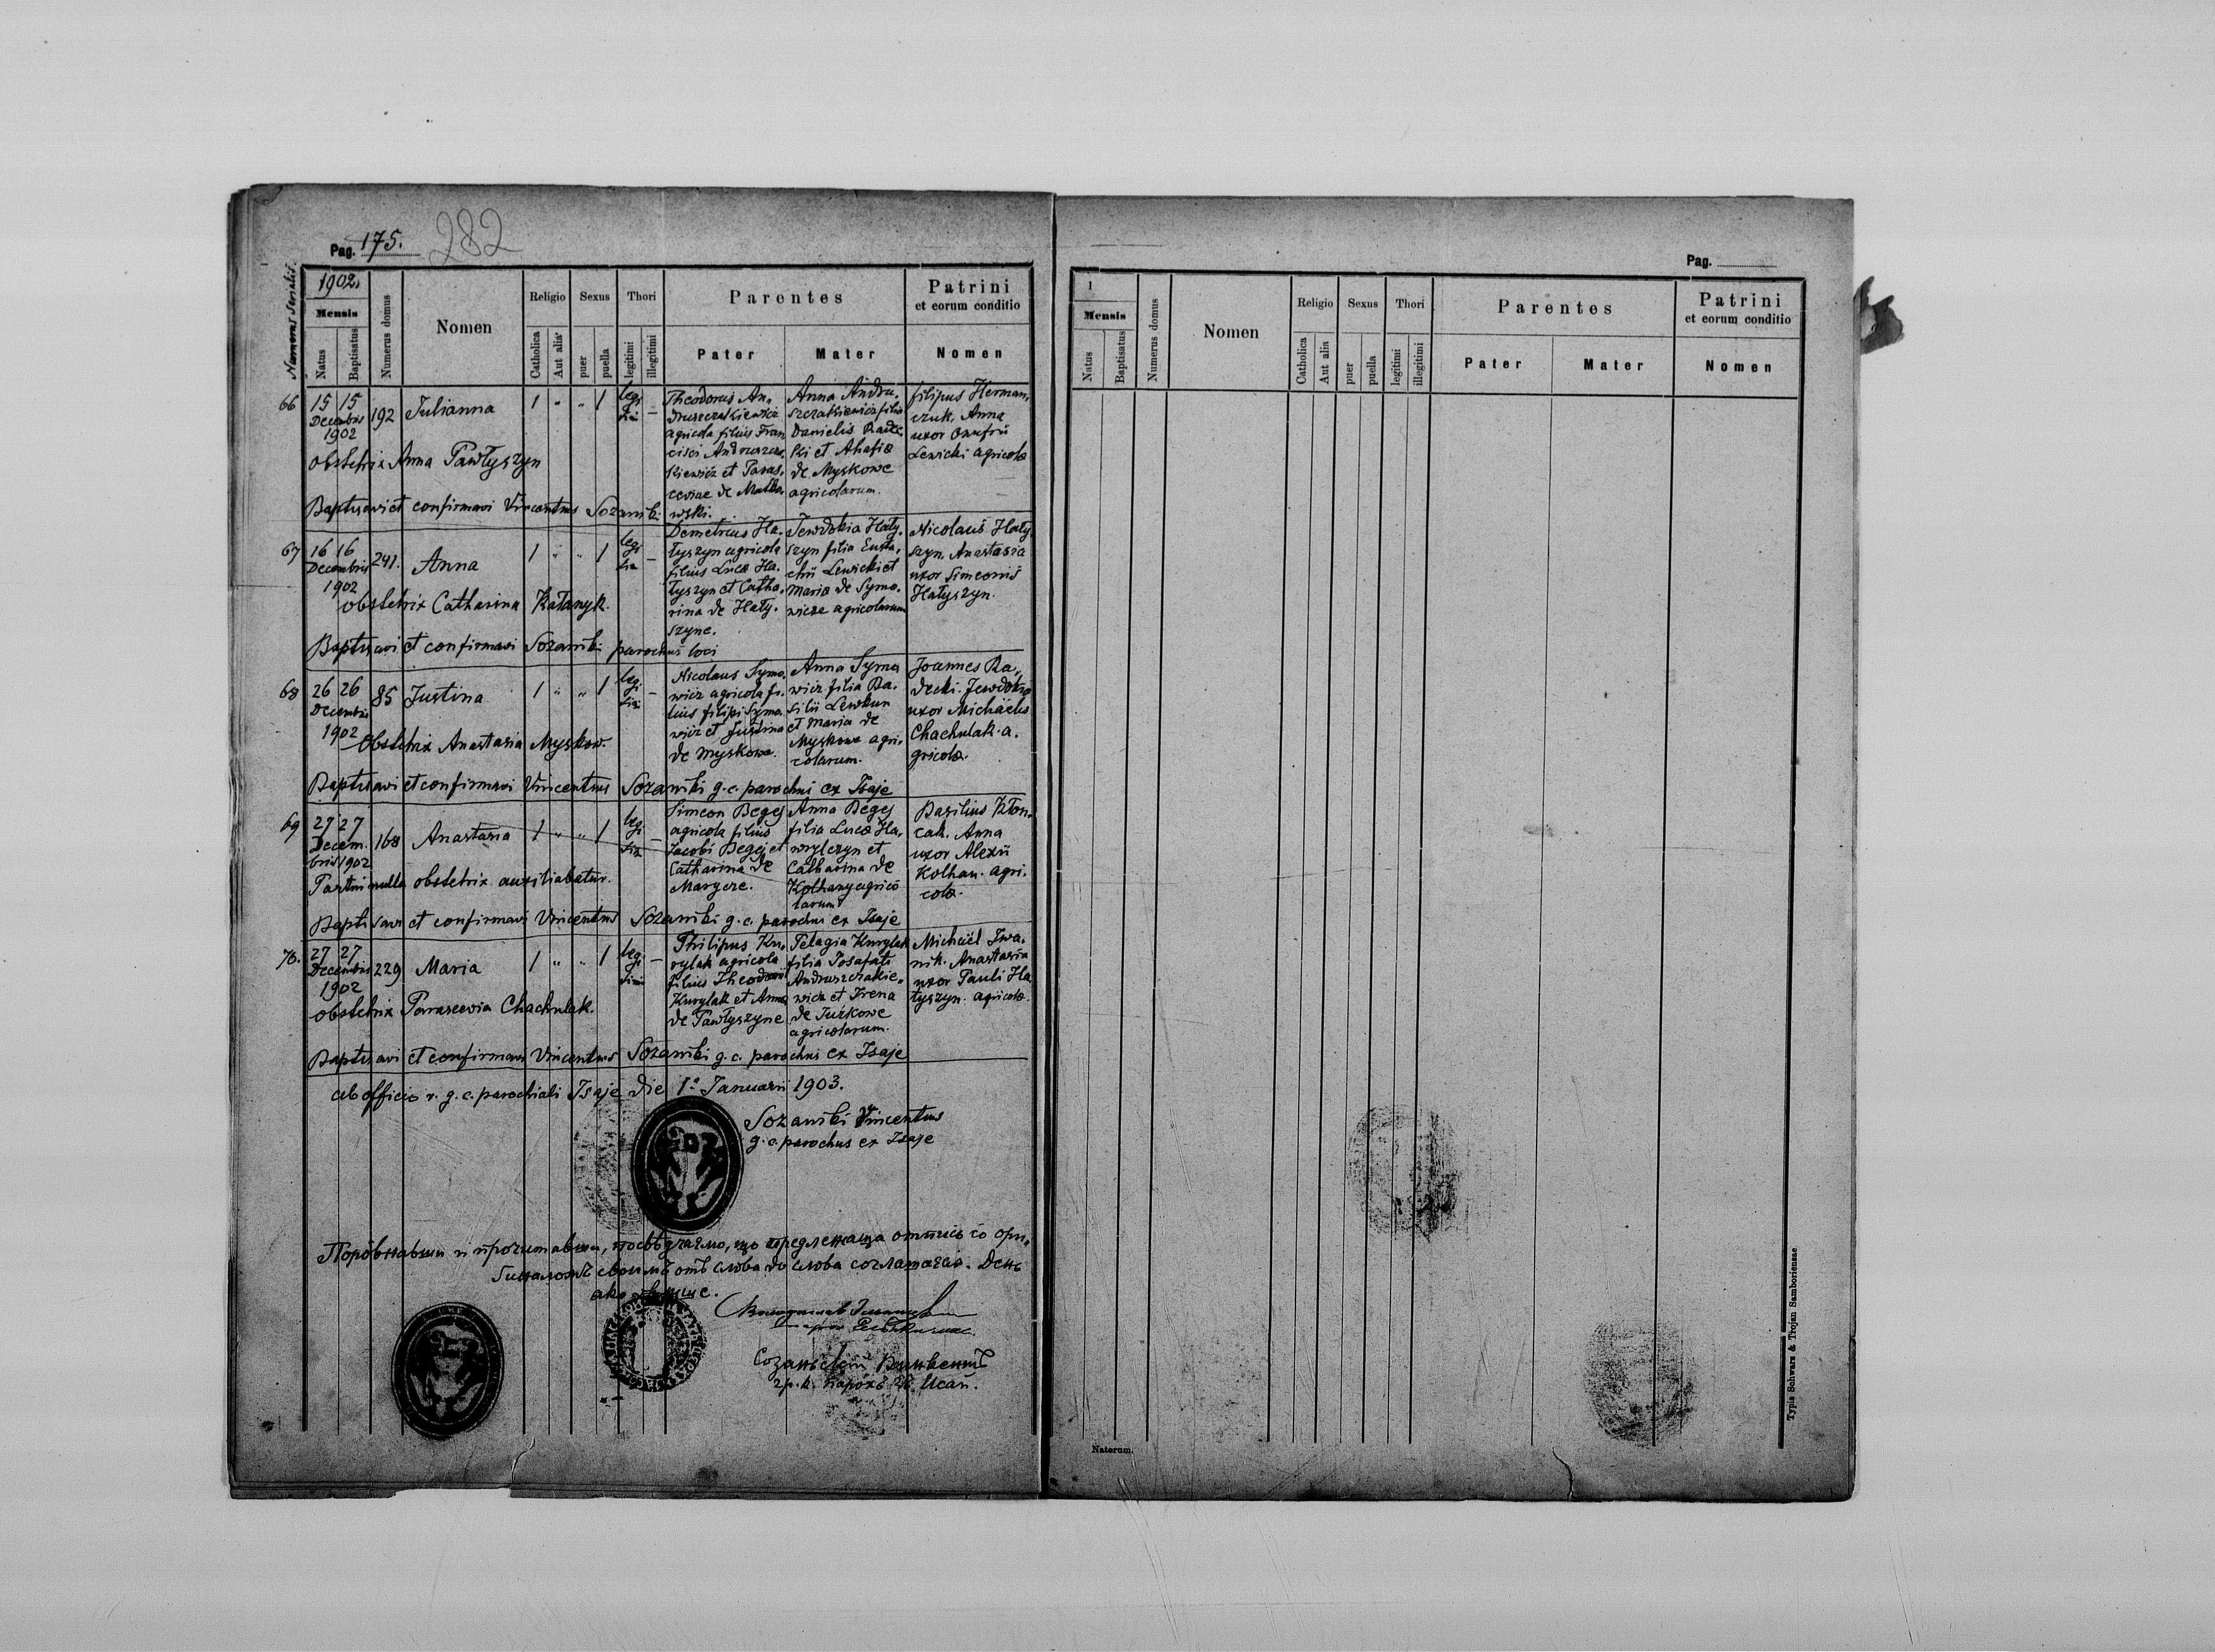 Pag. 175. 282
Numerus Serialis.
1902.
Mensis
Natus
Baptisatus
Numerus domus
Nomen
Religio
Catholica
Aut alia
Sexus
puer
puella
Thori
legitimi
illegitimi
Parentes
Pater
Mater
Patrini
et eorum conditio
Nomen
66 15 15 192 Julianna 1 " " 1 legi
timi –
Decembris
1902
Theodorus An-
druszczakiewicz
agricola filius Fran
cisci Andruszcza-
kiewicz et Paras-
ceviae de Matko
wski.
Anna Andru-
szczakiewicz filia
Danielis Radec
ki et Ahafia
de Myskowe
agricolarum.
filipus Herman-
czuk. Anna
uxor Onufrii
Lewicki agricola
obstetrix Anna Pawłyszyn
Baptisavi et confirmavi Vincentius Sozański
67 16 16 241. Anna 1 " " 1 legi
tim –
Decembris
1902
Demetrius Ha-
łyszyn agricola
filius Luca Ha-
łyszyn et Catha-
rina de Hały-
szyne.
Jewdokia Hały-
szyn filia Eusta-
chii Lewicki et
Maria de Symo-
wicze agricolarum
Nicolaus Hały
szyn. Anastasia
uxor Simeonis
Hałyszyn.
obstetrix Catharina Kałanyk.
Baptisavi et confirmavi Sozański parochus loci
68 26 26 85 Justina 1 " " 1 legi
timi –
Decembris
1902
Nicolaus Symo-
wicz agricola fi-
lius filipi Symo
wicz et Justina
de Myskowe.
Anna Symo
wicz filia Ba-
silii Lewkun
et Maria de
Myskowe agri-
colarum.
Joannes Ra-
decki. Jewdokia
uxor Michaelis
Chachulak a-
gricola.
Obstetrix Anastasia Myskow.
Baptisavi et confirmavi Vincentius Sozański g. c. parochus ex Isaje
69 27 27 168 Anastasia 1 " " 1 legi
tim –
Decem-
bris 1902
Simeon Begej
agricola filius
Jacobi Begej et
Catharina de
Marycze.
Anna Begej
filia Luca Ha-
wrylczyn et
Catharina de
Kolhany agrico
larum
Basilius Kłon-
cak. Anna
uxor Alexii
Kolhan. agri-
cola.
Partui nulla obstetrix auxiliabatur.
Baptisavi et confirmavi Vincentius Sozański g. c. parochus ex Isaje
70. 27 27 229 Maria 1 " " 1 legi
timi –
Decembris
1902
Philipus Ku-
rylak agricola
filius Theodori
Kurylak et Anna
de Pawłyszyne
Pelagia Kurylak
filia Josafati
Andruszczakie-
wicz et Irena
de Jurkowe
agricolarum.
Michaël Iwa-
nik. Anastasia
uxor Pauli Ha
łyszyn. agricola.
obstetrix Parascewia Chachulak.
Baptisavi et confirmavi Vincentius Sozański g. c. parochus ex Isaje
ab officio r. g. c. parochiali Isaje die 1º Januarii 1903.
Sozański Vincentius
g. c. parochus ex Isaje
Порôвнавши и прочитавши, посвѣдчаємо, що предлежаща отпись со ори-
гиналомъ своимъ отъ слова до слова согласаєся. День
ако выше.
Созаньскій Винкентій
гр. к. парохъ въ Исаи.
Pag.
1
Mensis
Natus
Baptisatus
Numerus domus
Nomen
Religio
Catholica
Aut alia
Sexus
puer
puella
Thori
legitimi
illegitimi
Parentes
Pater
Mater
Patrini
et eorum conditio
Nomen
Natorum.
Typis Schwarz & Trojan Samboriense.